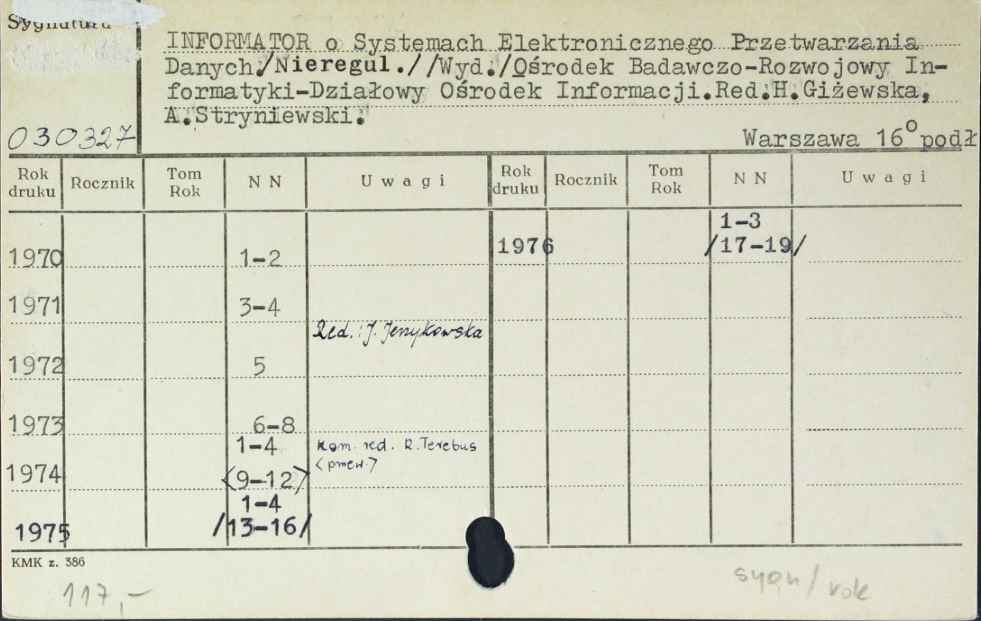 Sygnatura
INFORMATOR o Systemach Elektronicznego Przetwarzania
Danych/Nieregul.//Wyd./Ośrodek Badawczo-Rozwojowy In-
formatyki-Działowy Ośrodek Informacji.Red.H.Giżewska,
A.Stryniewski.
030327
Warszawa 16° podł
Rok druku Rocznik Tom Rok N N Uwagi Rok druku Rocznik Tom Rok N N Uwagi
1970 1-2 1976 1-3 /17-19/
1971 3-4
Red. : J. Jenykowska
1972 5
1973 6-8
1974 1-4 <9-12> Kom. red. R. Terebus
1975 1-4 /13-16/
KMK z. 386
117,-
sygn/rok